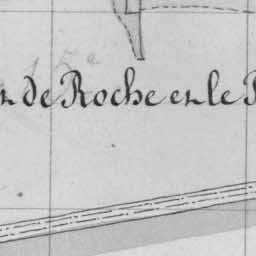 de Roche en le